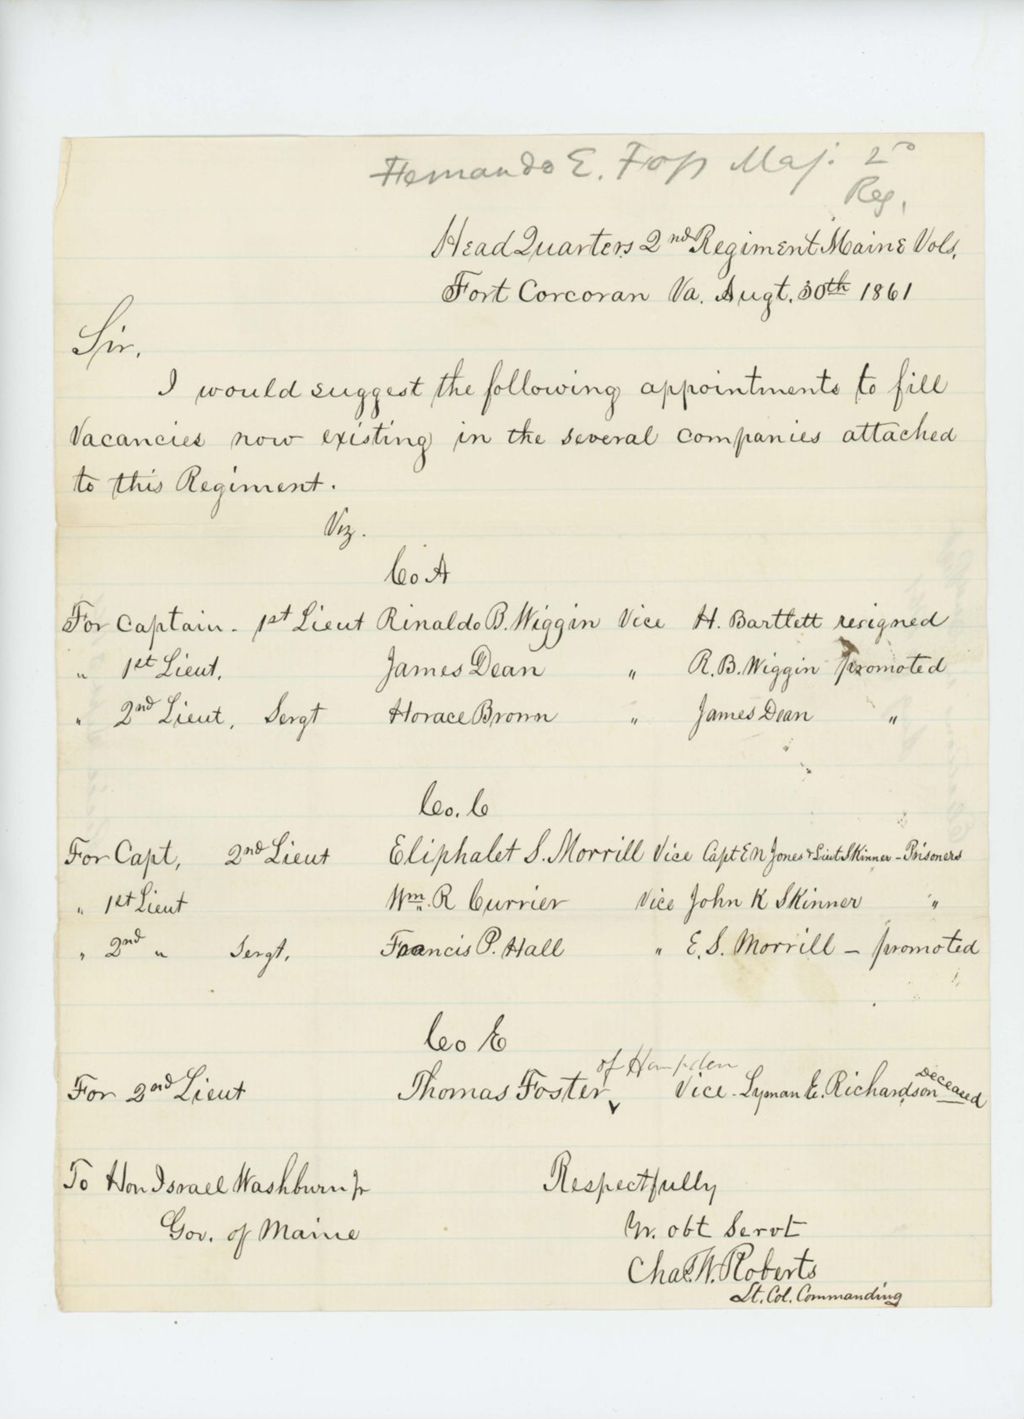 Hernando E. Foss Maj. 2d
Reg.
Head Quarters 2nd Regiment Maine Vols,
Fort Corcoran Va. Augt. 30th 1861
Sir,
I would suggest the following appointments to fill
Vacancies now existing in the several companies attached
to this Regiment.
Viz.
Co A
For Captain - 1st Lieut Rinaldo B. Wiggin Vice H. Bartlett resigned
" 1st Lieut, James Dean " R. B. Wiggin promoted
" 2nd Lieut, Sergt Horace Brown " James Dean "
Co. C
For Capt, 2nd Lieut Eliphalet S. Morrill Vice Capt E N Jones & Lieut Skinner - Prisoners
" 1st Lieut Wm. R Currier Vice John K Skinner "
" 2nd " Sergt, Francis P. Hall " E. S. Morrill - promoted
Co E
For 2nd Lieut Thomas Foster, of Hampden Vice - Lyman E. Richardson Deceased
To Hon Israel Washburn Jr Respectfully
Gov. of Maine Yr. obt Servt
Chas. W. Roberts
Lt. Col. Commanding